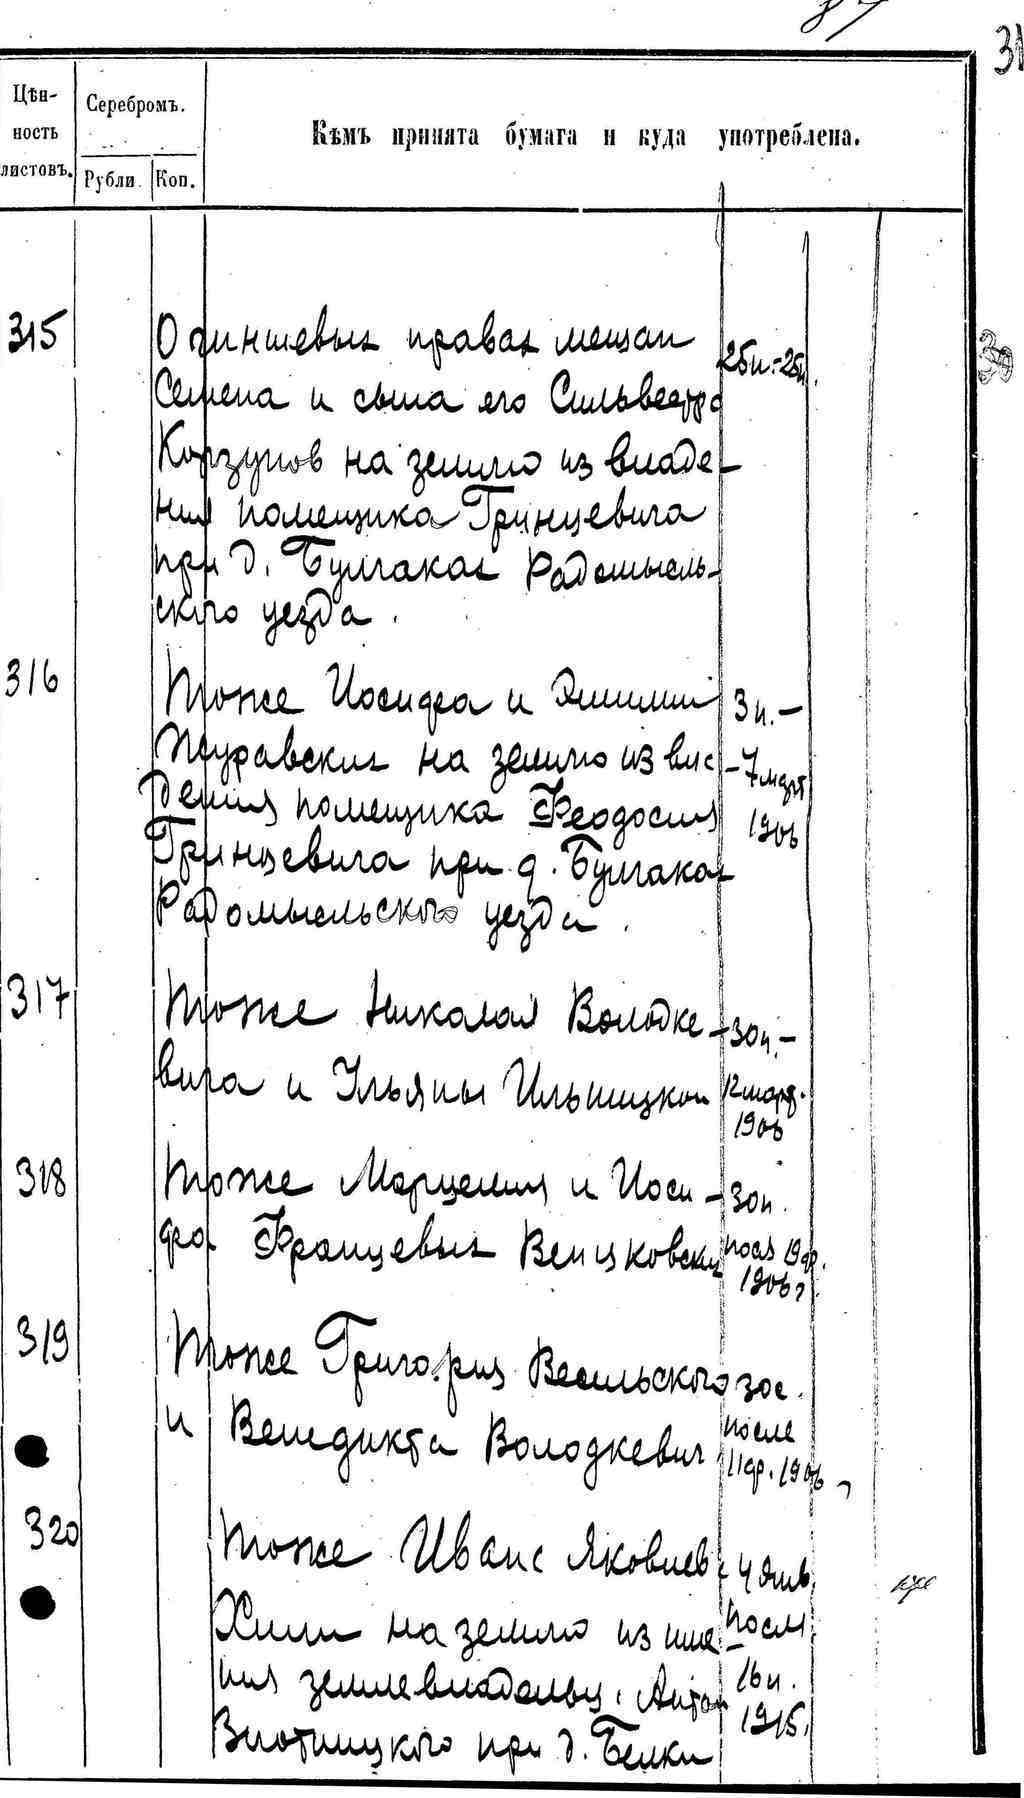 87
31
Цѣн-
ность
листовъ.
Серебромъ.
Рубли. Коп.
Кѣмъ принята бумага и куда употреблена.
315 О чиншевых правах мещан
Семена и сына его Сильвестра
Корзунов на землю из владе-
ния помещика Гринцевича
при д. Булгаках Радомысль-
ского уезда.
316 тоже Иосифа и
Журавских на землю из вла
дения помещика Феодосия
Гринцевича при д. Булгаках
Радомысльского уезда.
3 и. -
- 7 март
1906
317 тоже Николая Володке-
вича и Ульяны Ильницкой
30 и. -
12 март.
1906
318 тоже Марцелия и Иоси-
фа Францевых Венцковских
30 и.
1906 г.
319 тоже Григория Весельского
и Венедикта Володкевич
после
11 ф. 1906
320 тоже Ивана Яковлев
на землю из име
ния землевладельц. Антон
при д. Белки
4 янв.
после
16 и.
1915.